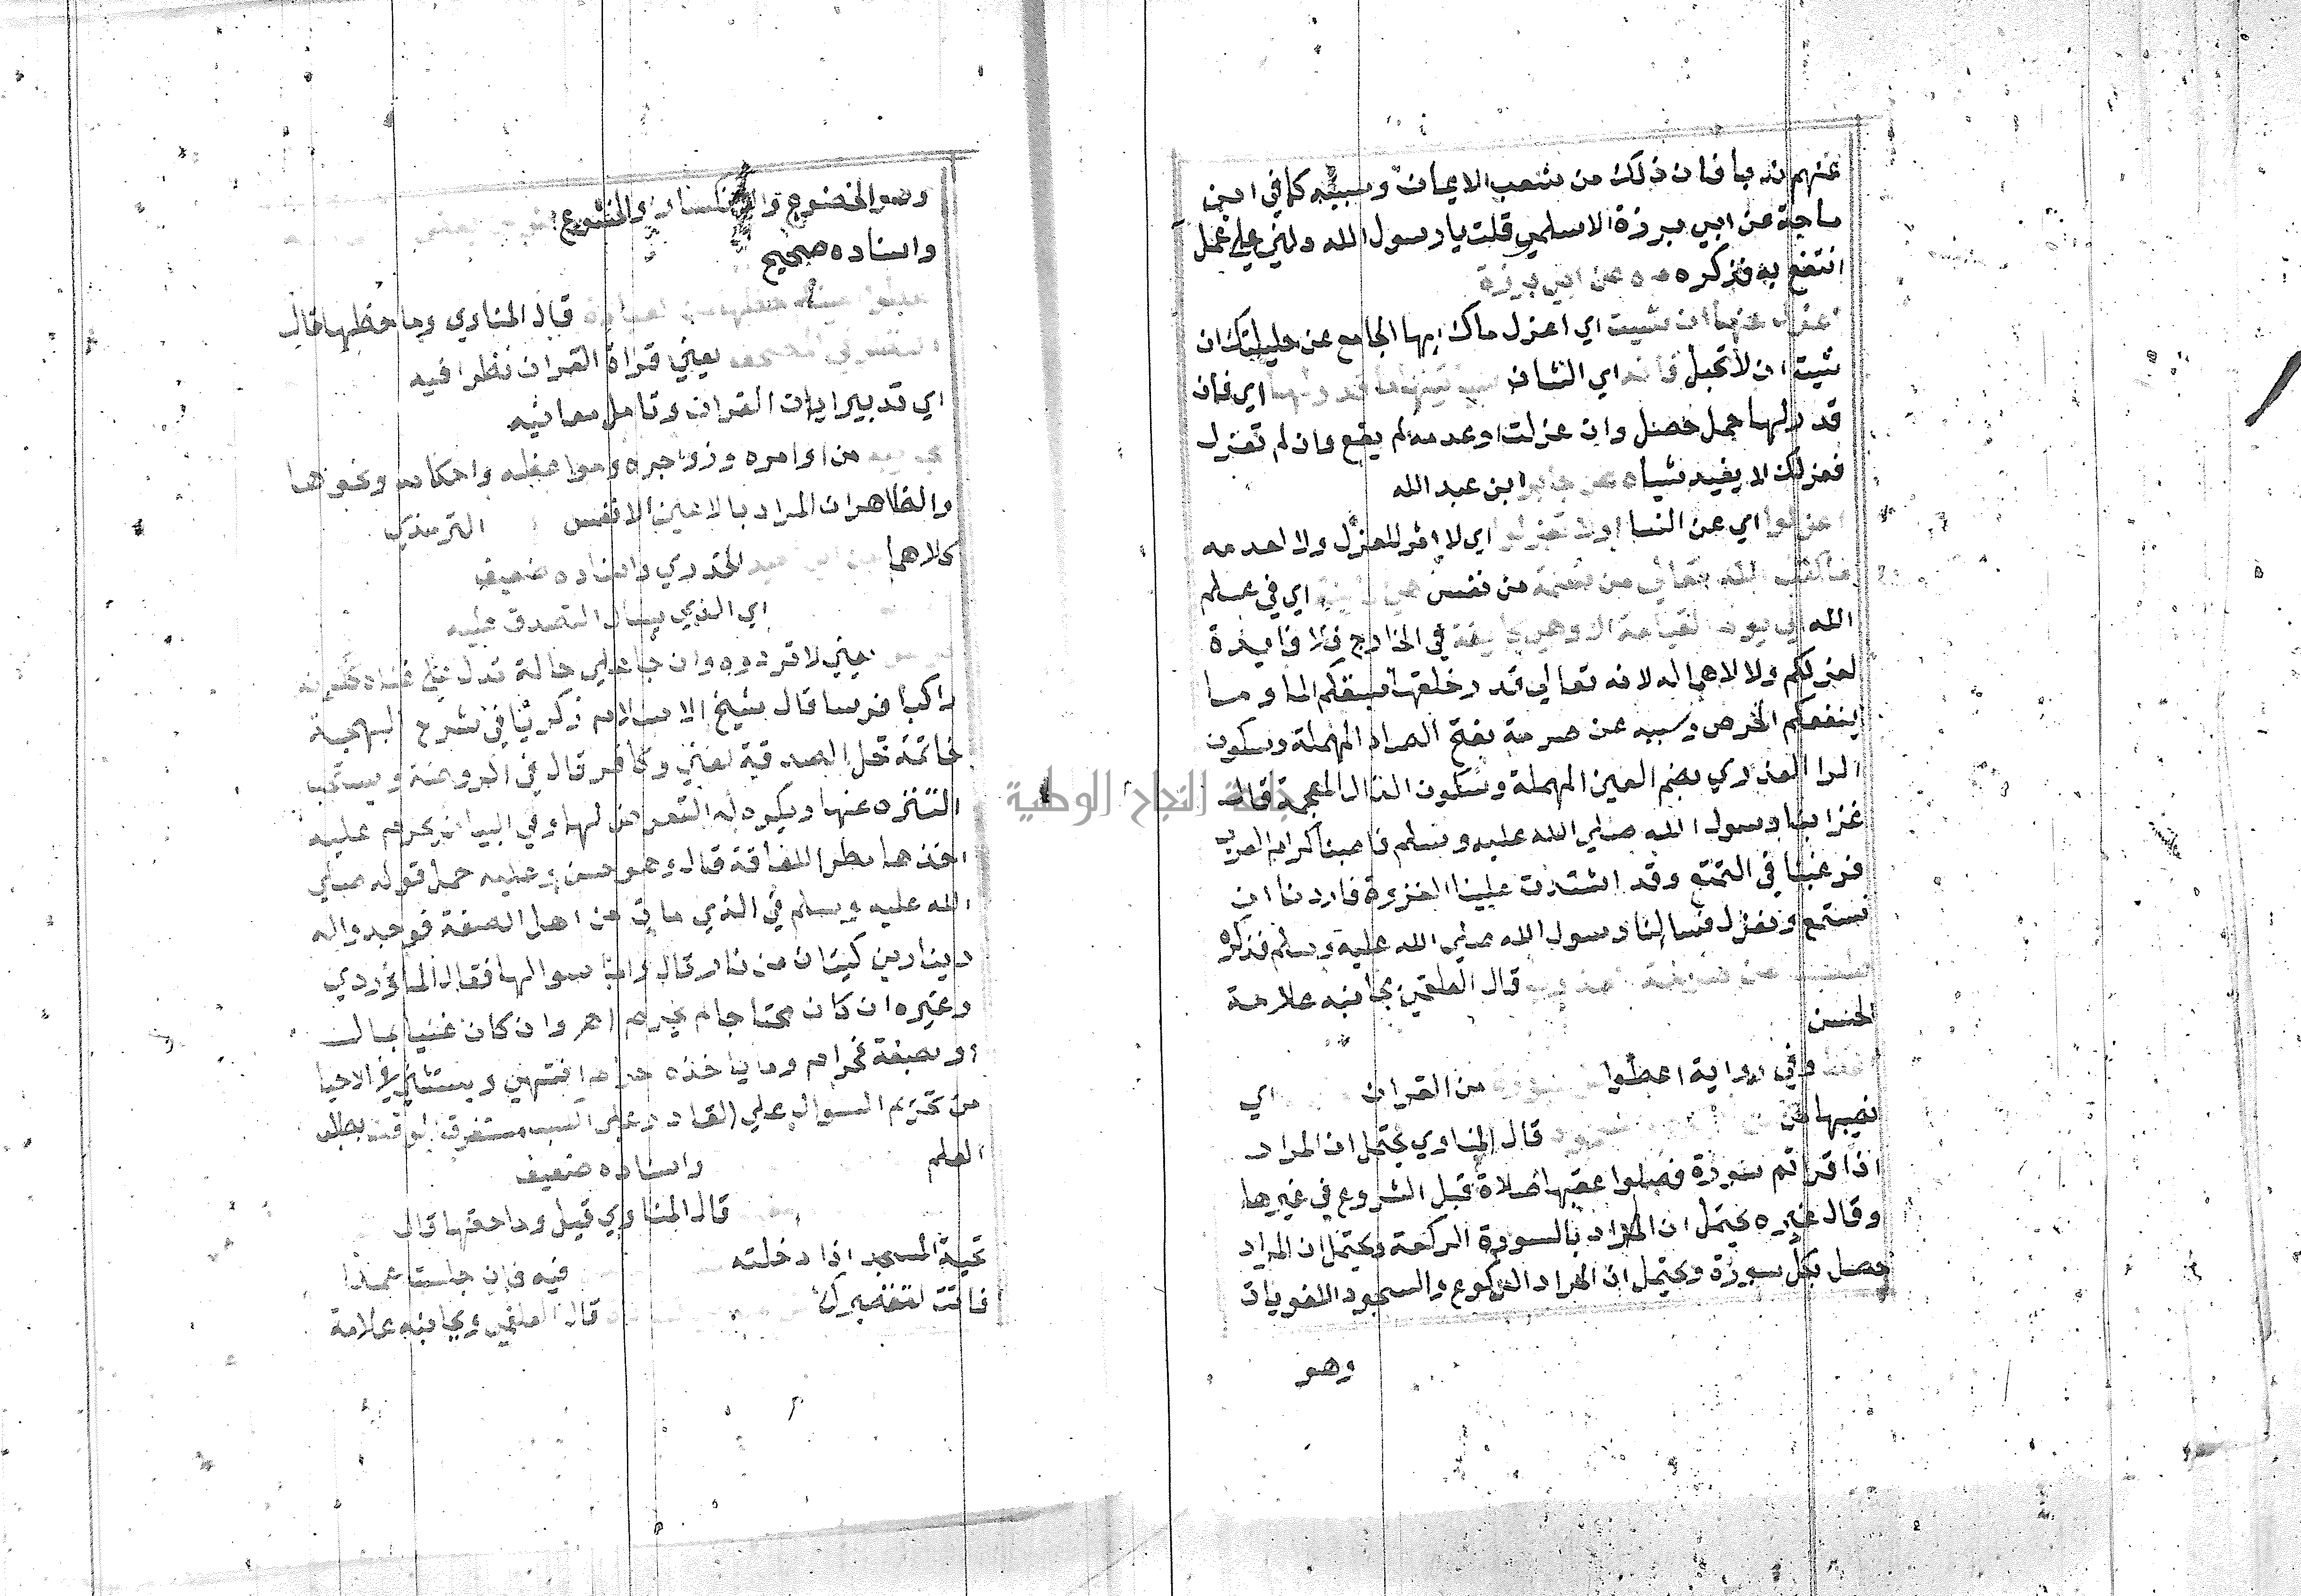 عنهم ندبا فان ذلك من شعب الايمان وسببه كما في ابن
ماجة عن ابي برزة الاسلمي قلت يا رسول الله دلني علي عمل
انتفع به فذكره ه عن ابي برزة
اعزل عنها ان شيت اي اعزل ماك ايها المجامع عن حليلتك ان
شيت ان لا تحبل فانه اي الشان سياتيها ما قدر لها اي فان
قدر لها حمل حصل وان عزلت او عدمه لم يقع وان لم تعزل
فعزلك لا يفيد شيا م عن جابر ابن عبد الله
اعزلوا اي عن النسا اولا تعزلوا اي لا اثر للعزل ولا لعدمه
ما كتب الله تعالي من نسمة من نفس هي كاينة اي في علم
الله الي يوم القيامة الا وهي كاينة في الخارج فلا فايدة
لعزلكم ولا لاهماله لانه تعالي قدر خلقها سبقكم الما وما
ينفعكم الحرص وسببه عن صرمة بفتح الصاد المهملة وسكون
الرا العذري بضم العين المهملة وسكون الذال المعجمة قال
غزا بنا رسول الله صلي الله عليه وسلم فاصبنا كرايم العرب
فرغبنا في التمتع وقد اشتدت علينا العزوبة فاردنا ان
نستمتع ونعزل فسالنا رسول الله صلي الله عليه وسلم فذكره
طب عن صرمة العذري قال العلقمي بجانبه علامة
الحسن
وفي رواية اعطوا كل سورة من القران اي
نصيبها من قال المناوي يحتمل ان المراد
اذا قراتم سورة فصلوا عقبها صلاة قبل الشروع في غيرها
وقال غيره يحتمل ان المراد بالسورة الركعة ويحتمل ان المراد
صل بكل سورة ويحتمل ان المراد الركوع والسجود اللغويان
وهو
وهو الخضوع والانكسار والخشوع
واسناده صحيح
اعينكم حظها من العبادة قال المناوي وما حظها قال
النظر في المصحف يعني قراة القران نظرا فيه
اي تدبير ايات القران وتامل معانيه
من اوامره وزواجره ومواعظه واحكامه ونحوها
والظاهر ان المراد بالاعين الانفس الترمذي
كلاهما عن ابي سعيد الخدري واسناده ضعيف
اي الذي يسال التصدق عليه
يعني لا تردوه وان جا علي حالة تدل علي غناه ككونه
راكبا فرسا قال شيخ الاسلام زكريا في شرح البهجة
خاتمة تحل الصدقة لغني وكافر قال في الروضة ويستحب
التنزه عنها ويكره له التعرض لها وفي البيان يحرم عليه
اخذها مظهرا للفاقة قال وهو حسن وعليه حمل قوله صلي
الله عليه وسلم في الذي مات من اهل الصفة فوجدوا له
دينارين كيتان من نار قال واما سوالها فقال الماوردي
وغيره ان كان محتاجا لم يحرم وان كان غنيا بمال
او بصنعة فحرام وما ياخذه حرام انتهي ويستثني في الاحيا
من تحريم السوال علي القادر علي الكسب مستغرق الوقت بطلب
العلم واسناده ضعيف
قال المناوي قيل وما حقها قال
تحية المسجد اذا دخلته فيه فان جلست عمدا
فاتت لتقصيرك قال العلقمي وبجانبه علامة
جامعة النجاح الوطنية